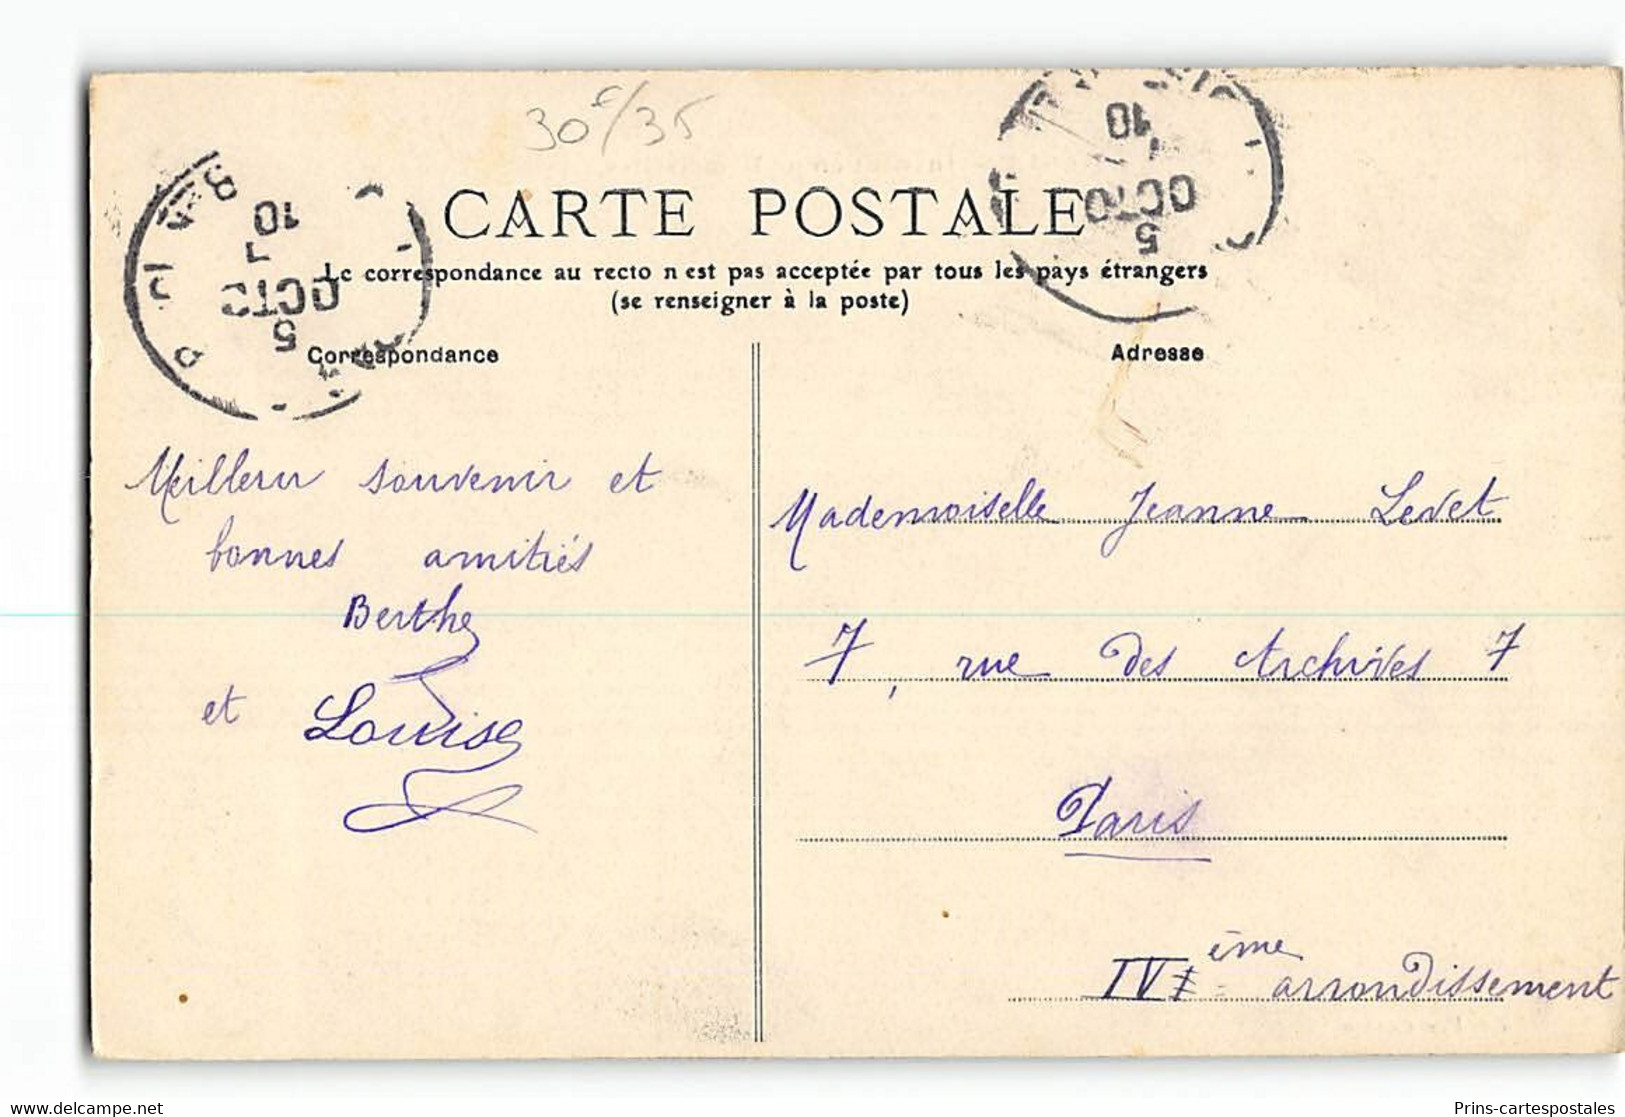 30F/35
CARTE POSTALE
Le correspondance au recto n est pas acceptée par tous les pays étrangers
(se renseigner à la poste)
Correspondance
Adresse
5
OCTO
10
5
OCTO
10
Meilleur souvenir et
bonnes amitiés
Berthe
et Louise
Mademoiselle Jeanne Levet
7, rue des Archives 7
Paris
IV ème arrondissement
delcampe.net
Prins-cartespostales